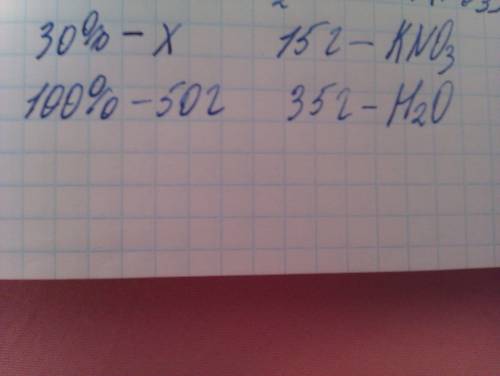 30% – x 15г – KNO₃
100% – 50г 35г – H₂O